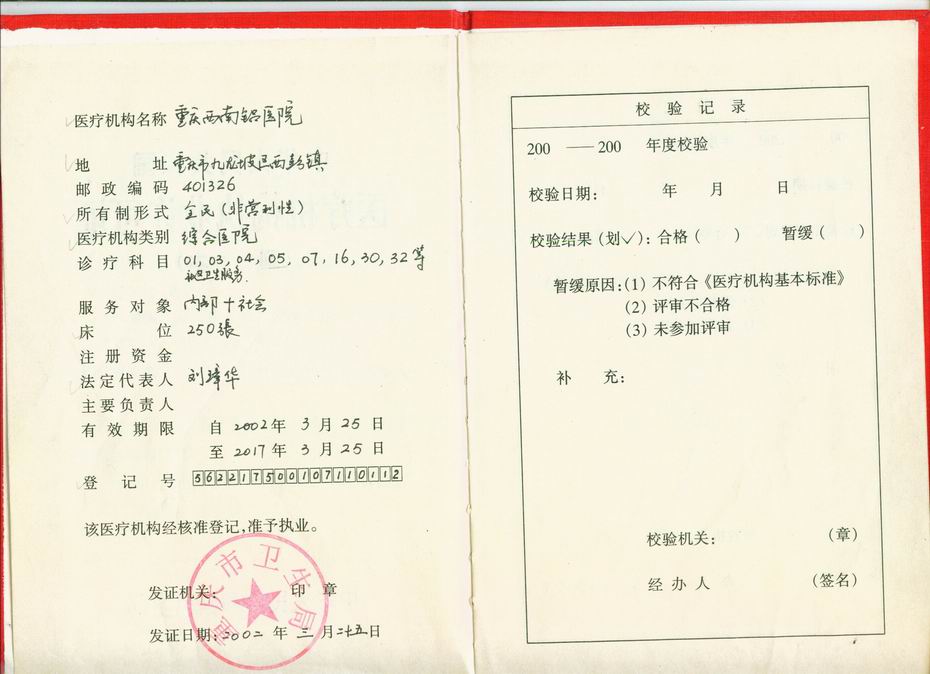 医疗机构名称 重庆西南铝医院
地 址 重庆市九龙坡区西彭镇
邮政编码 401326
所有制形式 全民(非营利性)
医疗机构类别 综合医院
诊疗科目 01,03,04,05,07,16,30,32等
社区卫生服务.
服务对象 内部十社会
床 位 250張
注册资金
法定代表人 刘璋华
主要负责人
有效期限 自 2002年 3 月 25 日
至 2017年 3 月 25 日
登记号 5622175000107110112
该医疗机构经核准登记,准予执业。
重庆市卫生局
发证机关: 印 章
发证日期:2002 年 三 月二十五日
校验记录
200 —200 年度校验
校验日期: 年 月 日
校验结果(划√):合格( ) 暂缓( )
暂缓原因:(1) 不符合《医疗机构基本标准》
(2) 评审不合格
(3) 未参加评审
补 充:
校验机关: (章)
经办人 (签名)